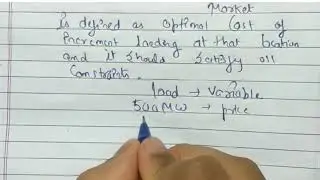 Market
is defined as optimal cost of
increment loading at that location
and it should satisfy all
constraints.
load → variable
500MW → price